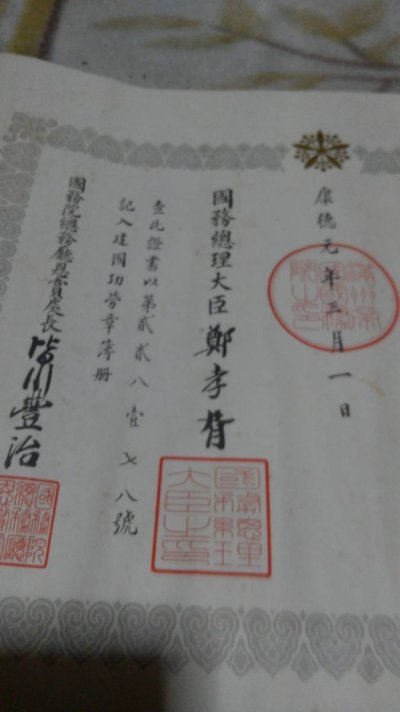 康德元年三月一日
國務總理大臣鄭孝胥
國務總理大臣之印
查此證書以第貳貳八壹七八號
記入建國功勞章簿冊
國務院總務廳恩賞處長皆川豐治